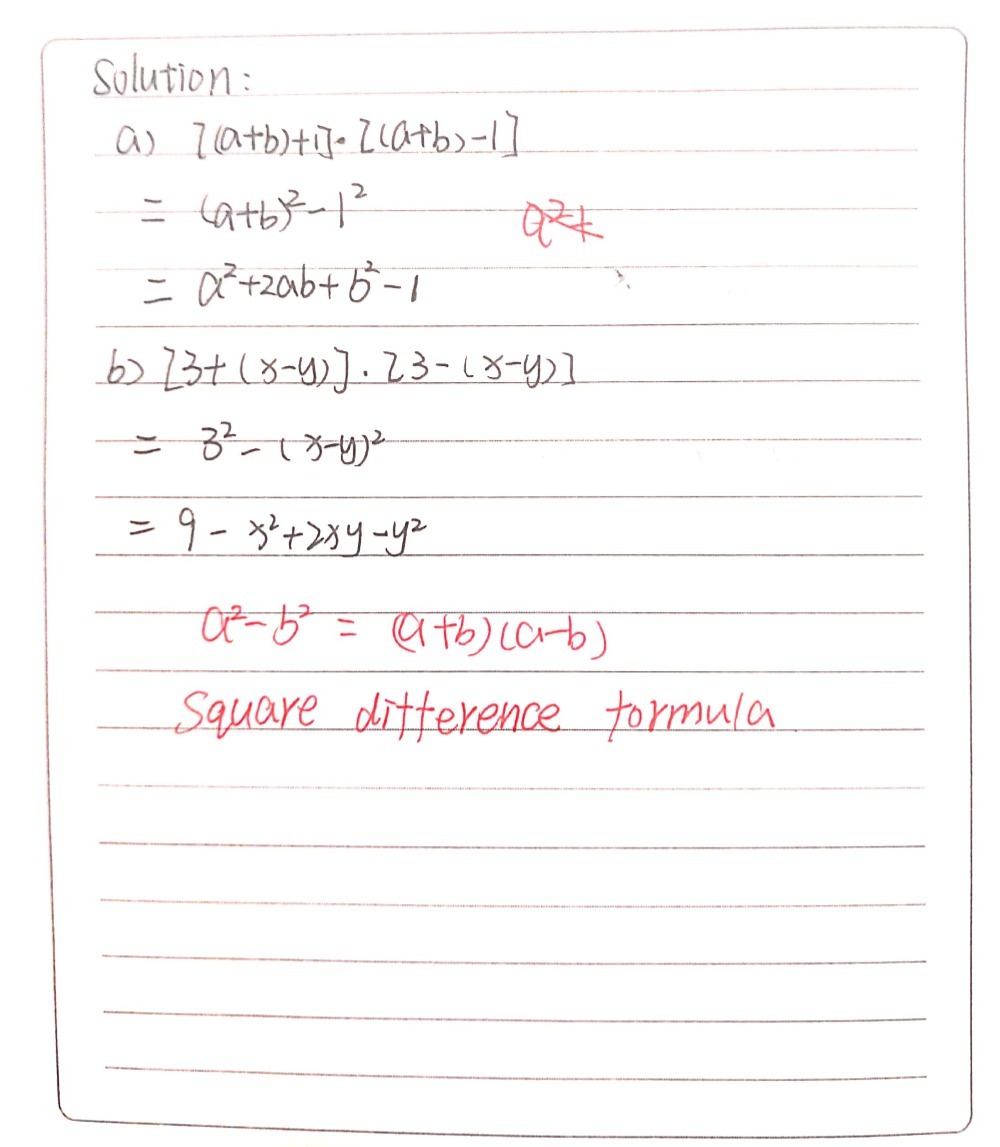 Solution:
a) [(a+b)+1]·[(a+b)-1]
= (a+b)²-1²
a²+
= a²+2ab+b²-1
b) [3+(x-y)]·[3-(x-y)]
= 3²-(x-y)²
= 9-x²+2xy-y²
a²-b² = (a+b)(a-b)
Square difference formula